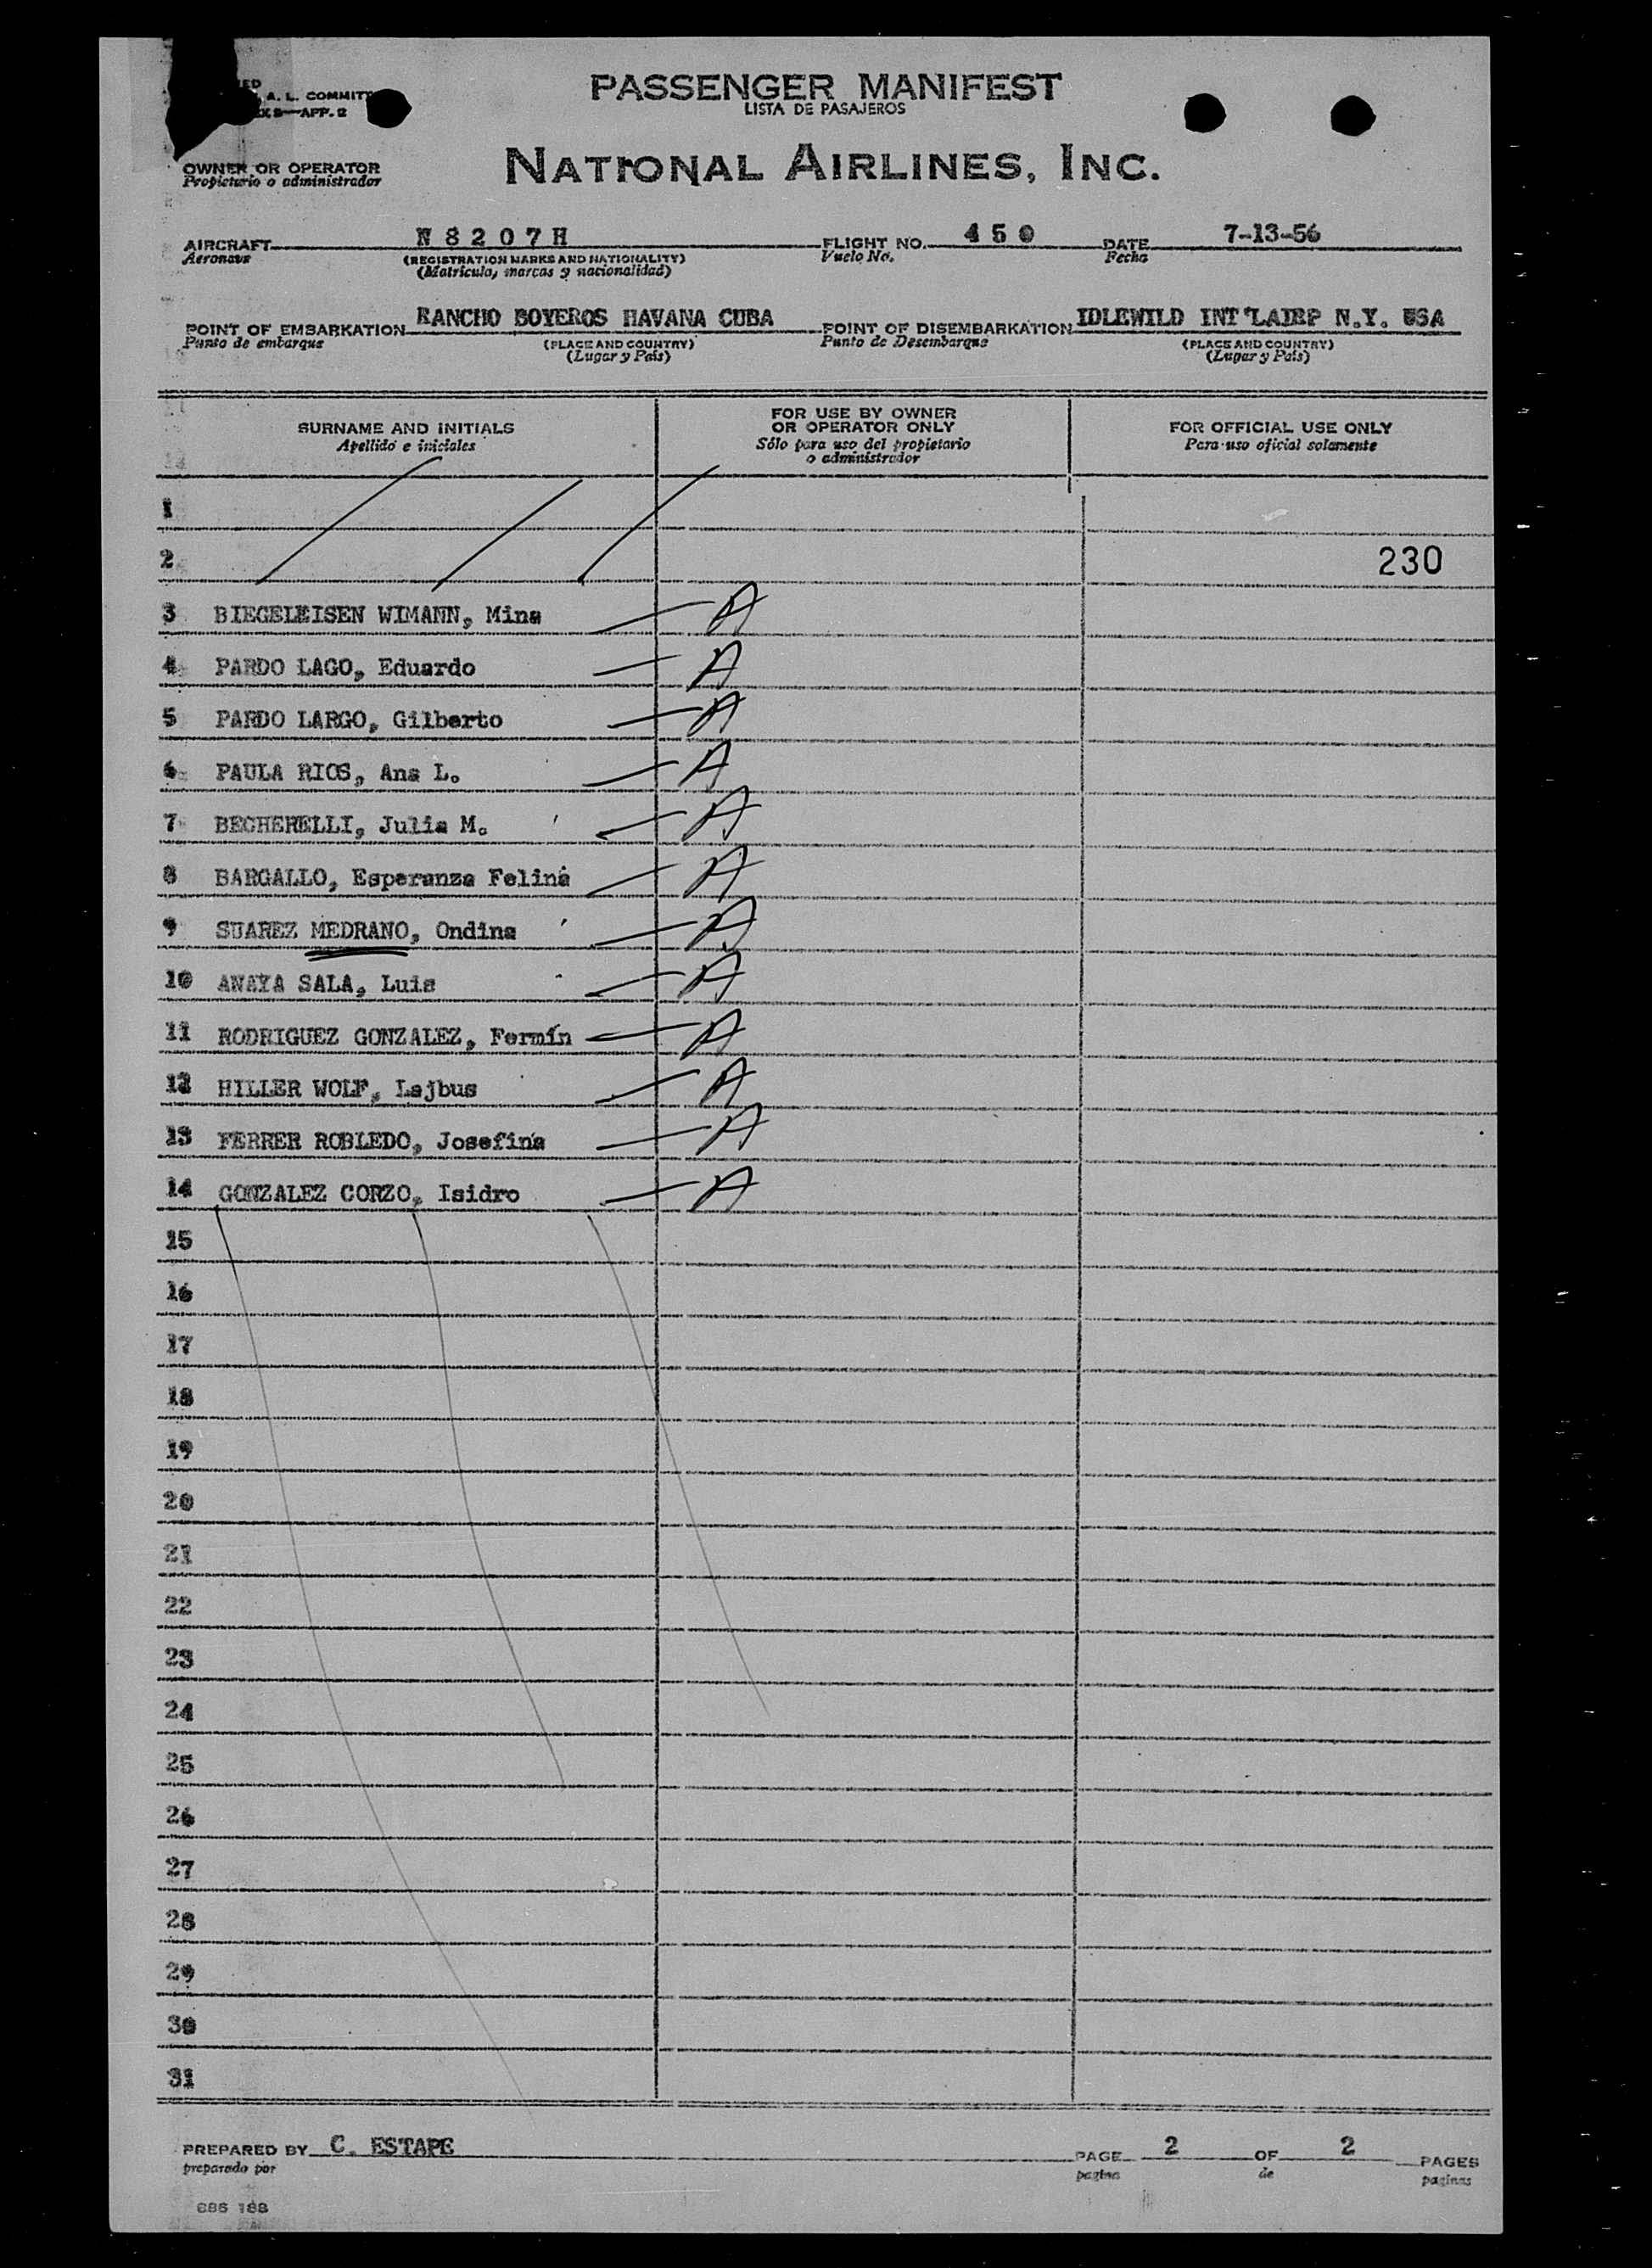 A. L. COMMITT
APP. 2
PASSENGER MANIFEST
LISTA DE PASAJEROS
OWNER OR OPERATOR
Propietario o administrador
NATIONAL AIRLINES, INC.
AIRCRAFT N 8 2 0 7 H FLIGHT NO. 4 5 0 DATE 7-13-56
Aeronave (REGISTRATION MARKS AND NATIONALITY) Vuelo No. Fecha
(Matricula, marcas y nacionalidad)
POINT OF EMBARKATION RANCHO BOYEROS HAVANA CUBA POINT OF DISEMBARKATION IDLEWILD INT'LAIRP N.Y. USA
Punto de embarque (PLACE AND COUNTRY) Punto de Desembarque (PLACE AND COUNTRY)
(Lugar y País) (Lugar y País)
SURNAME AND INITIALS
Apellido e iniciales
FOR USE BY OWNER
OR OPERATOR ONLY
Sólo para uso del propietario
o administrador
FOR OFFICIAL USE ONLY
Para uso oficial solamente
1
2 230
3 BIEGELEISEN WIMANN, Mina A
4 PARDO LAGO, Eduardo A
5 PARDO LARGO, Gilberto A
6 PAULA RIOS, Ana L. A
7 BECHERELLI, Julia M. A
8 BARGALLO, Esperanza Felina A
9 SUAREZ MEDRANO, Ondina A
10 ANAYA SALA, Luis A
11 RODRIGUEZ GONZALEZ, Fermín A
12 HILLER WOLF, Lajbus A
13 FERRER ROBLEDO, Josefina A
14 GONZALEZ CORZO, Isidro A
15
16
17
18
19
20
21
22
23
24
25
26
27
28
29
30
31
PREPARED BY C. ESTAPE PAGE 2 OF 2 PAGES
preparado por pagina de paginas